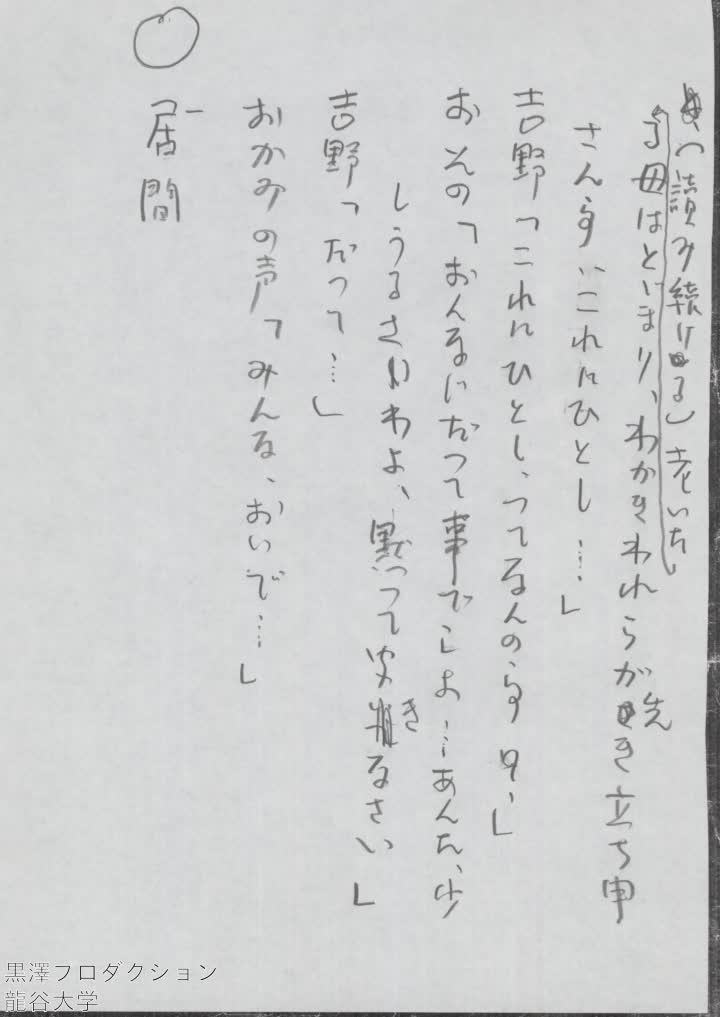 (読み続ける)老いた
母はとどまり、わかきわれらが先き立ち申
さんす、これにひとし…」
吉野「これにひとし、ってなんの事、」
おその「おんなじだって事でしょ…あんた、少
しうるさいわよ、黙ってきなさい」
吉野「だって…」
おかみの声「みんな、おいで…」
居間
黒澤プロダクション
龍谷大学